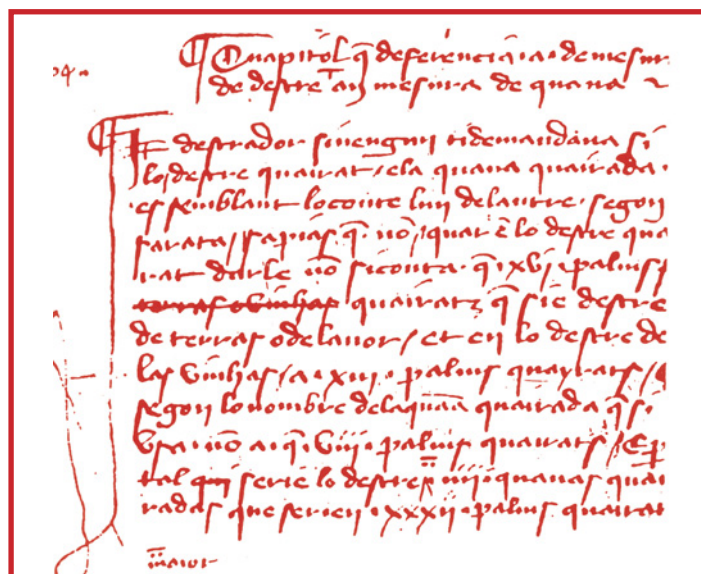 Cuapitol q̄ deferencia · a · de mesur
de destre am mesura de quana
destrador sinengun ti demandaua si
lo destre quairat / ela quana quairada ·
es semblant lo conte lun delautre · segon
sa rata / sapias q̄ · nō / quar ē lo destre qua
rat darle nō si conta · q̄ · xvi · palms
quairatz q̄ sie destre
de terras o de lauor / et en lo destre de
las vinhas / a · xiii · palms quayrats /
segon lo nombre de la quāa quairada q̄ si
vsa · nō a · q̄ · viii · palms quairats /
tal serie lo destre · iiii · quanas quai
radas que serien · xxxii · palms quairat
maior